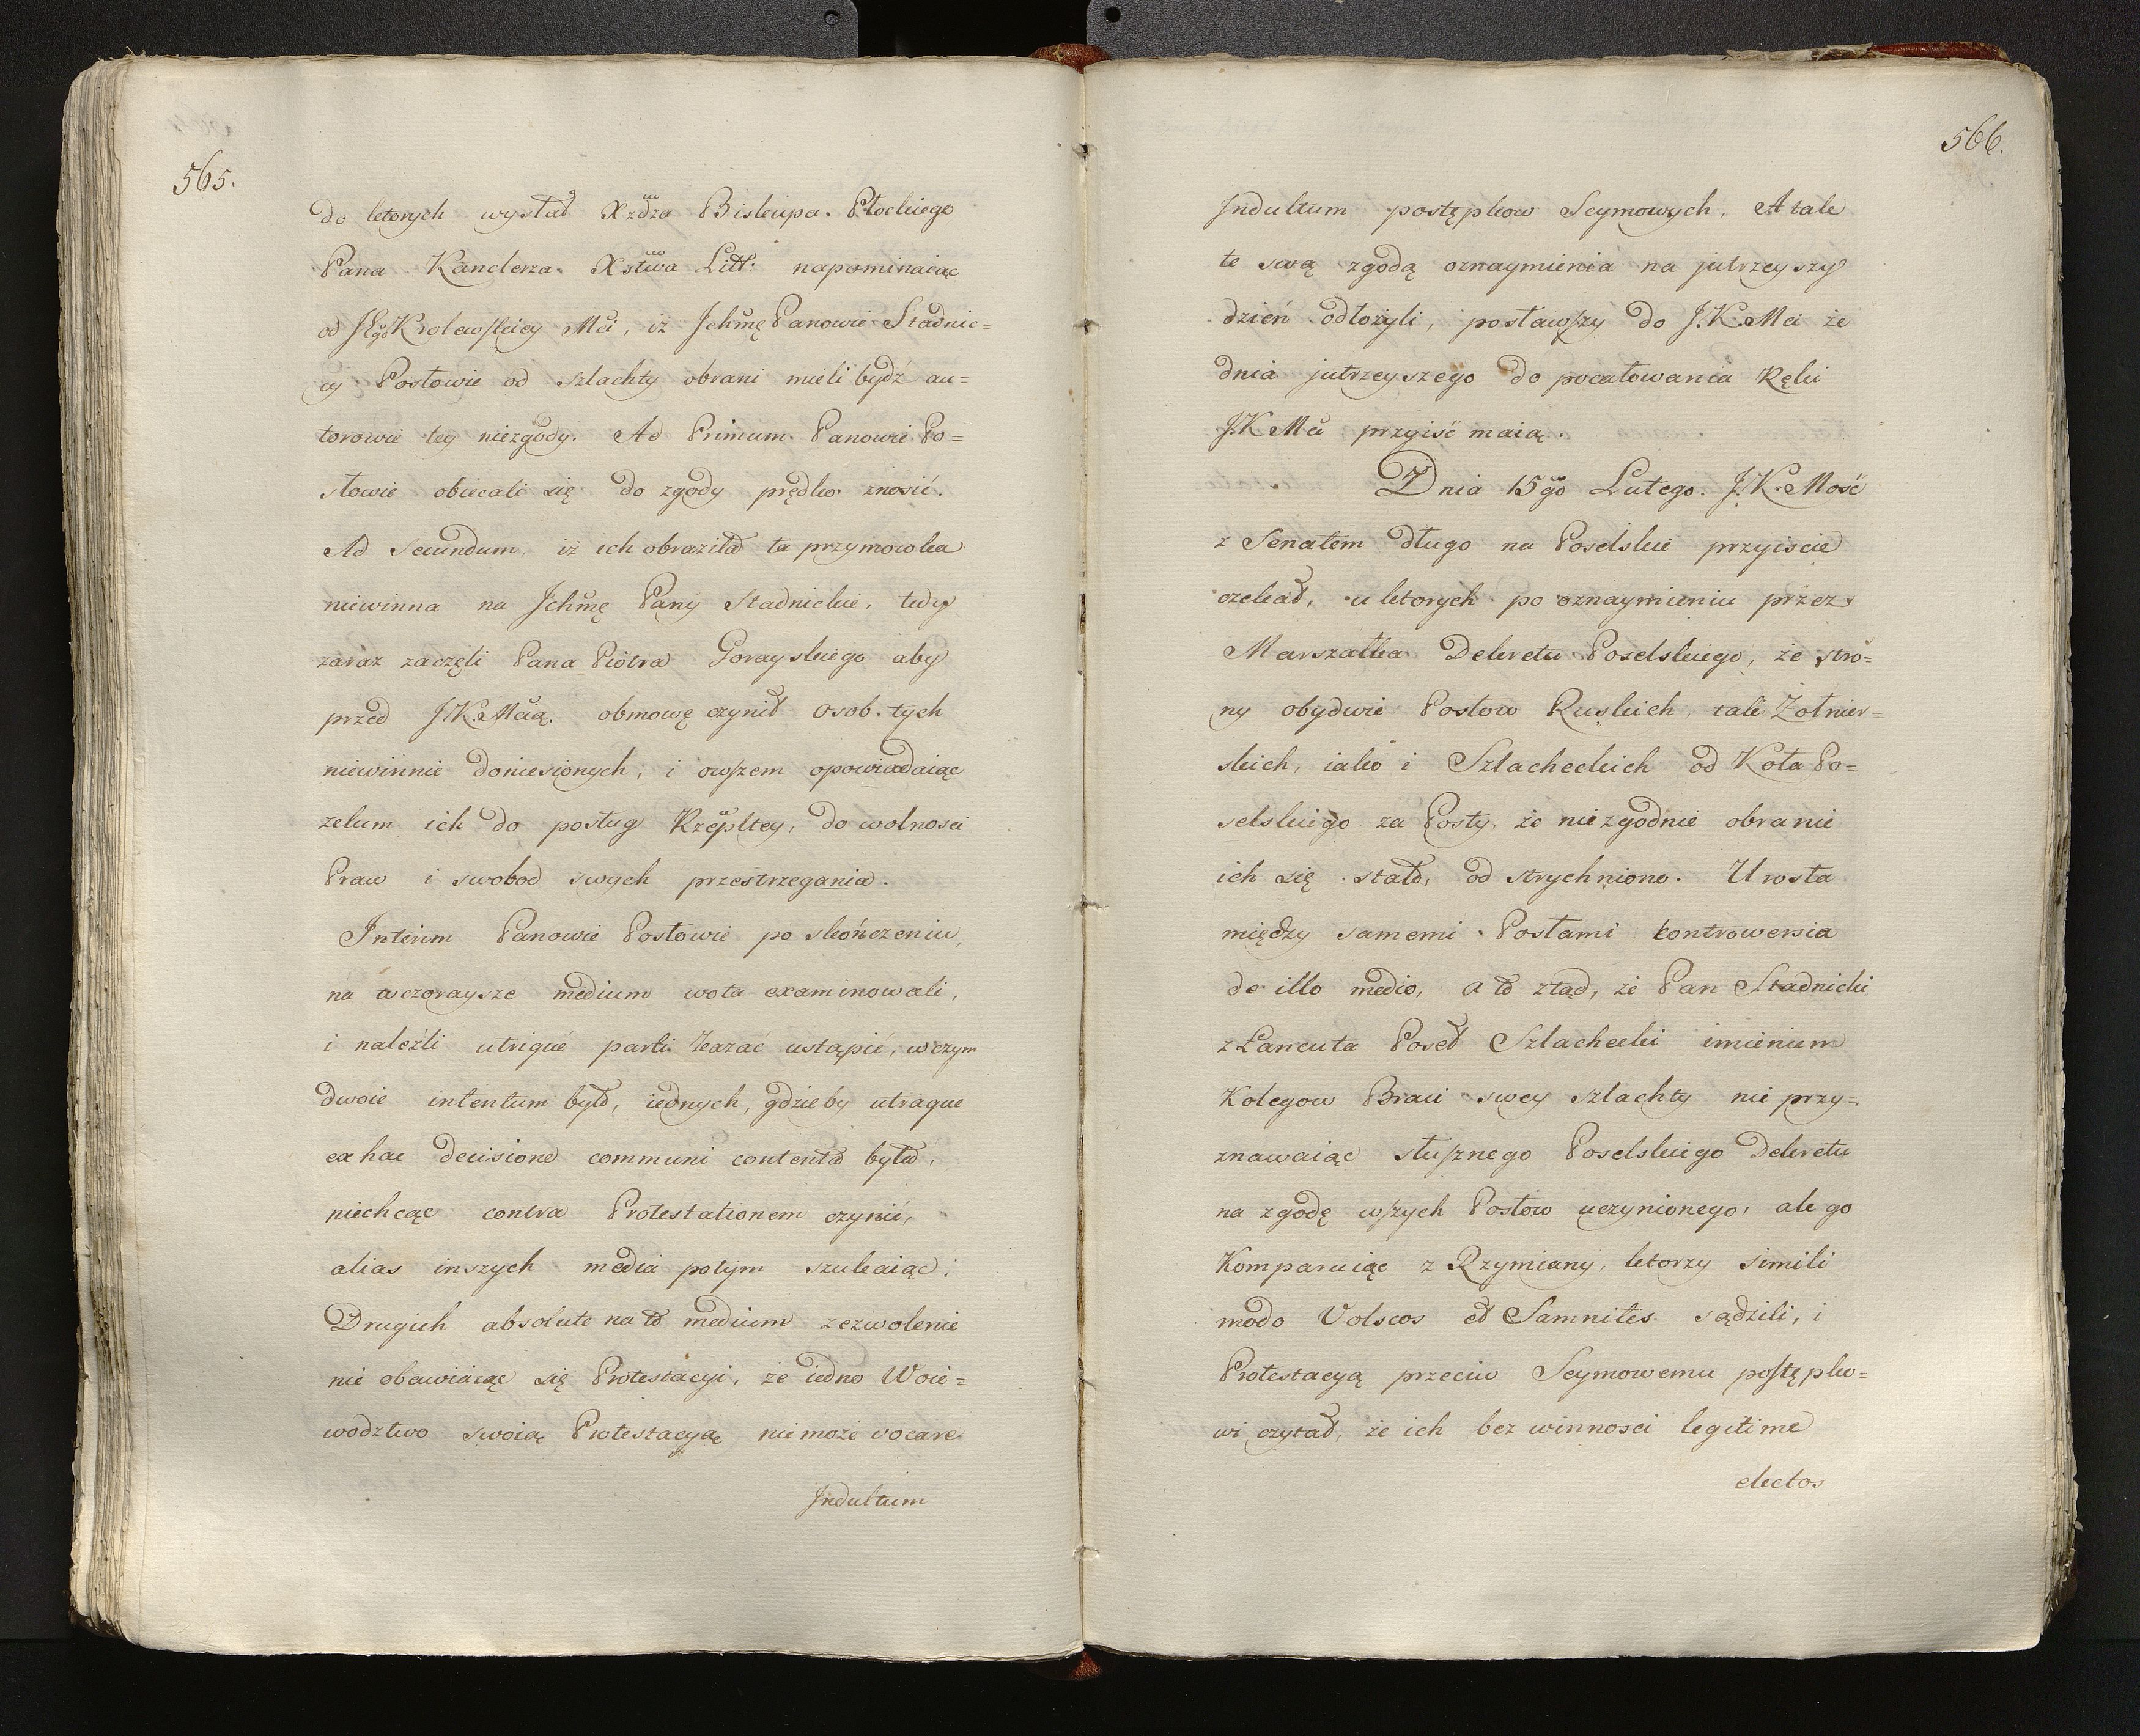 565.
do ktorych wysłał Xzdza Biskupa Płockiego
Pana Kanclerza Xstwa Litt: napominaiąc
od JEgo Krolewskiey Mci, iż Ichmę Panowie Stadnic=
cy Posłowie od szlachty obrani mieli bydź au=
torowie tey niezgody. Ad Primum Panowie Po=
słowie obiecali się do zgody prędko znosić.
Ad Secundum, iż ich obraziła ta przymowka
niewinna na Ichmę Pany Stadnickie, tedy
zaraz zaczęli Pana Piotra Gorayskiego aby
przed J.K.Mcią. obmowę czynił osob tych
niewinnie doniesionych, i owszem opowiadaiąc
zelum ich do posług Rzepltey, do wolnosci
Praw i swobod swych przestrzegania.
Interim Panowie Posłowie po skończeniu,
na wczoraysze medium wota examinowali,
i nalezli utrique parti kazać ustąpić, w czym
dwoie intentum było, iednych, gdzieby utraque
ex hac decisione communi contenta była,
niechcąc contra Protestationem czynić,
alias inszych media potym szukaiąc:
Drugich absolute na to medium zezwolenie
nie obawiaiąc się Protestacyi, że iedno Woie=
wodztwo swoią Protestacyą niemoże vocare
Indultum
566.
Indultum postępkow Seymowych, A tak
te swą zgodą oznaymienia na jutrzeyszy
dzień odłożyli, posławszy do J.K.Mci że
dnia jutrzeyszego do pocałowania Ręki
J.K Mci przyiść maią.
Dnia 15go Lutego. J.K.Mość
z Senatem długo na Poselskie przyiscie
czekał, u ktorych po oznaymieniu przez
Marszałka Dekretu Poselskiego, że stro=
ny obydwie Posłow Ruskich, tak Żołnier=
skich, iako i Szlacheckich od Koła Po=
selskiego za Posły, że niezgodnie obranie
ich się stało, odstrychniono. Urosła
między samemi Posłami kontrowersia
de illo medio, a to ztąd, że Pan Stadnicki
z Łancuta Poseł Szlachecki imieniem
Kolegow Braci swey szlachty nie przy=
znawaiąc słusznego Poselskiego Dekretu
na zgodę wszych Posłow uczynionego, ale go
Komparuiąc z Rzymiany, ktorzy simili
modo Volscos et Samnites sądzili, i
Protestacyą przeciw Seymowemu postępko=
wi czytał, że ich bez winnosci legitime
electos